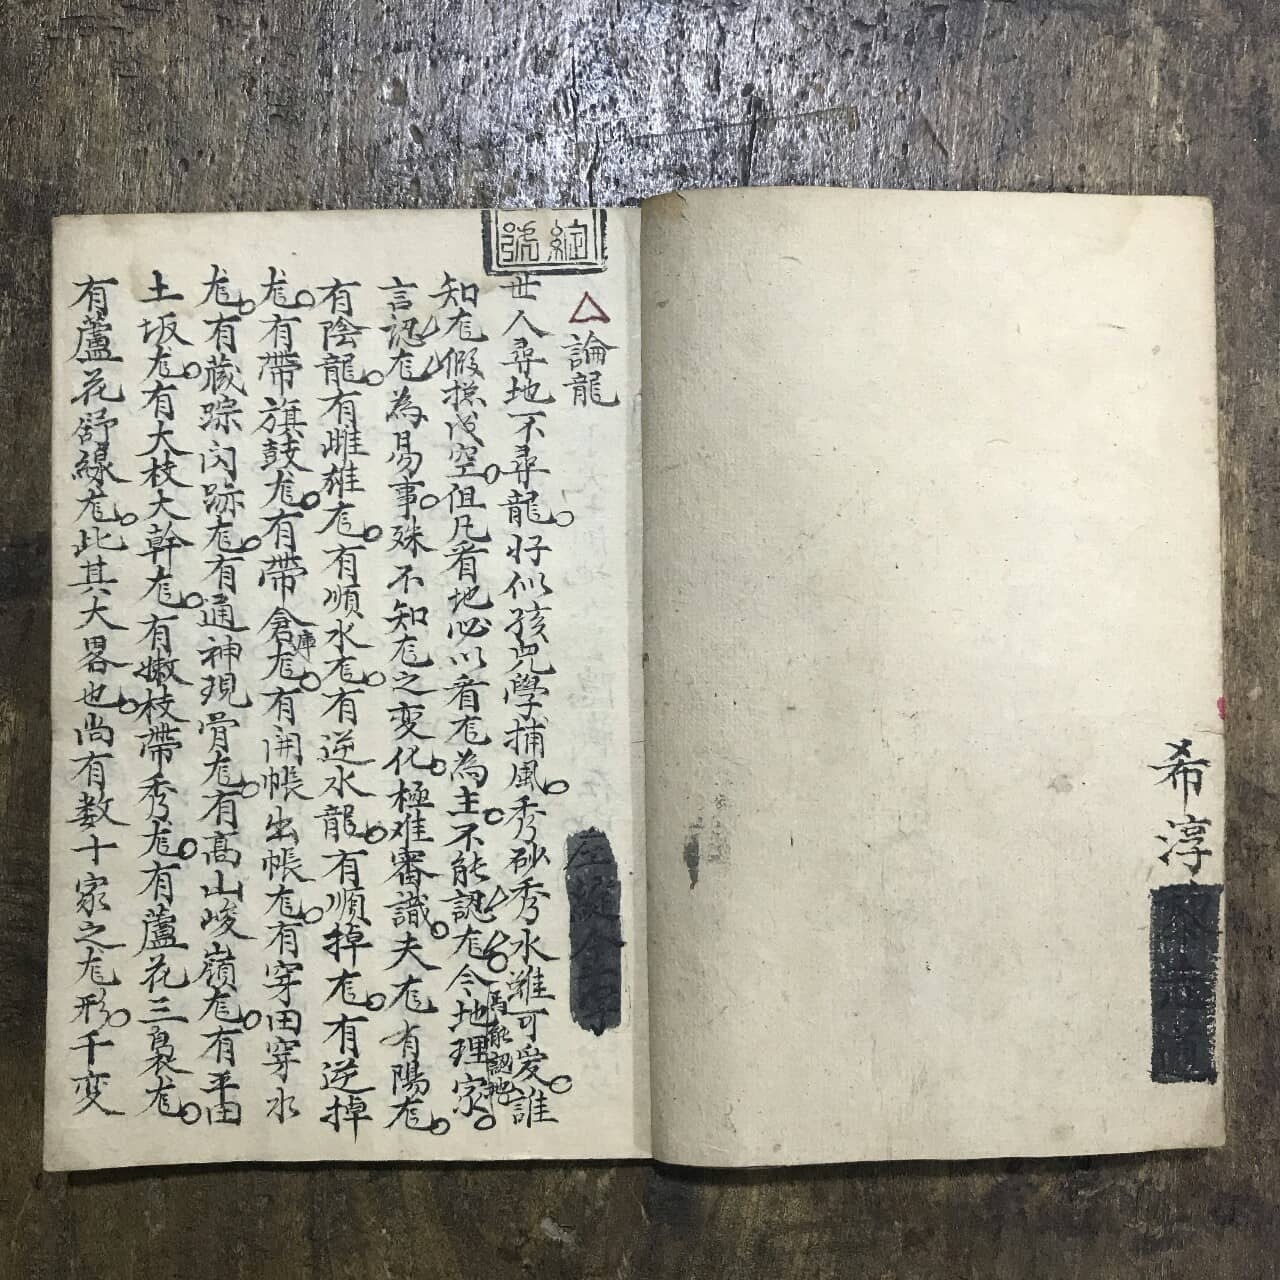 希淳
論龍
世人尋地不尋龍。好似孩児學捕風。秀砂秀水雖可爱。誰
知尨假捴成空。但凡看地必以看尨為主。不能認尨焉能認地。今地理家。
言認尨為易事。殊不知尨之变化。極难審識。夫尨有陽尨。
有陰龍。有雌雄尨。有順水尨。有逆水龍。有順掉尨。有逆掉
尨。有帶旗鼓尨。有帶倉庫尨。有開帳出帳尨。有穿田穿水
尨。有藏踪閃跡尨。有通神現骨尨。有高山峻嶺尨。有平田
土坂尨。有大枝大幹尨。有嫩枝帶秀尨。有蘆花三裊尨。
有蘆花舒線尨。此其大畧也。尚有数十家之尨形。千变